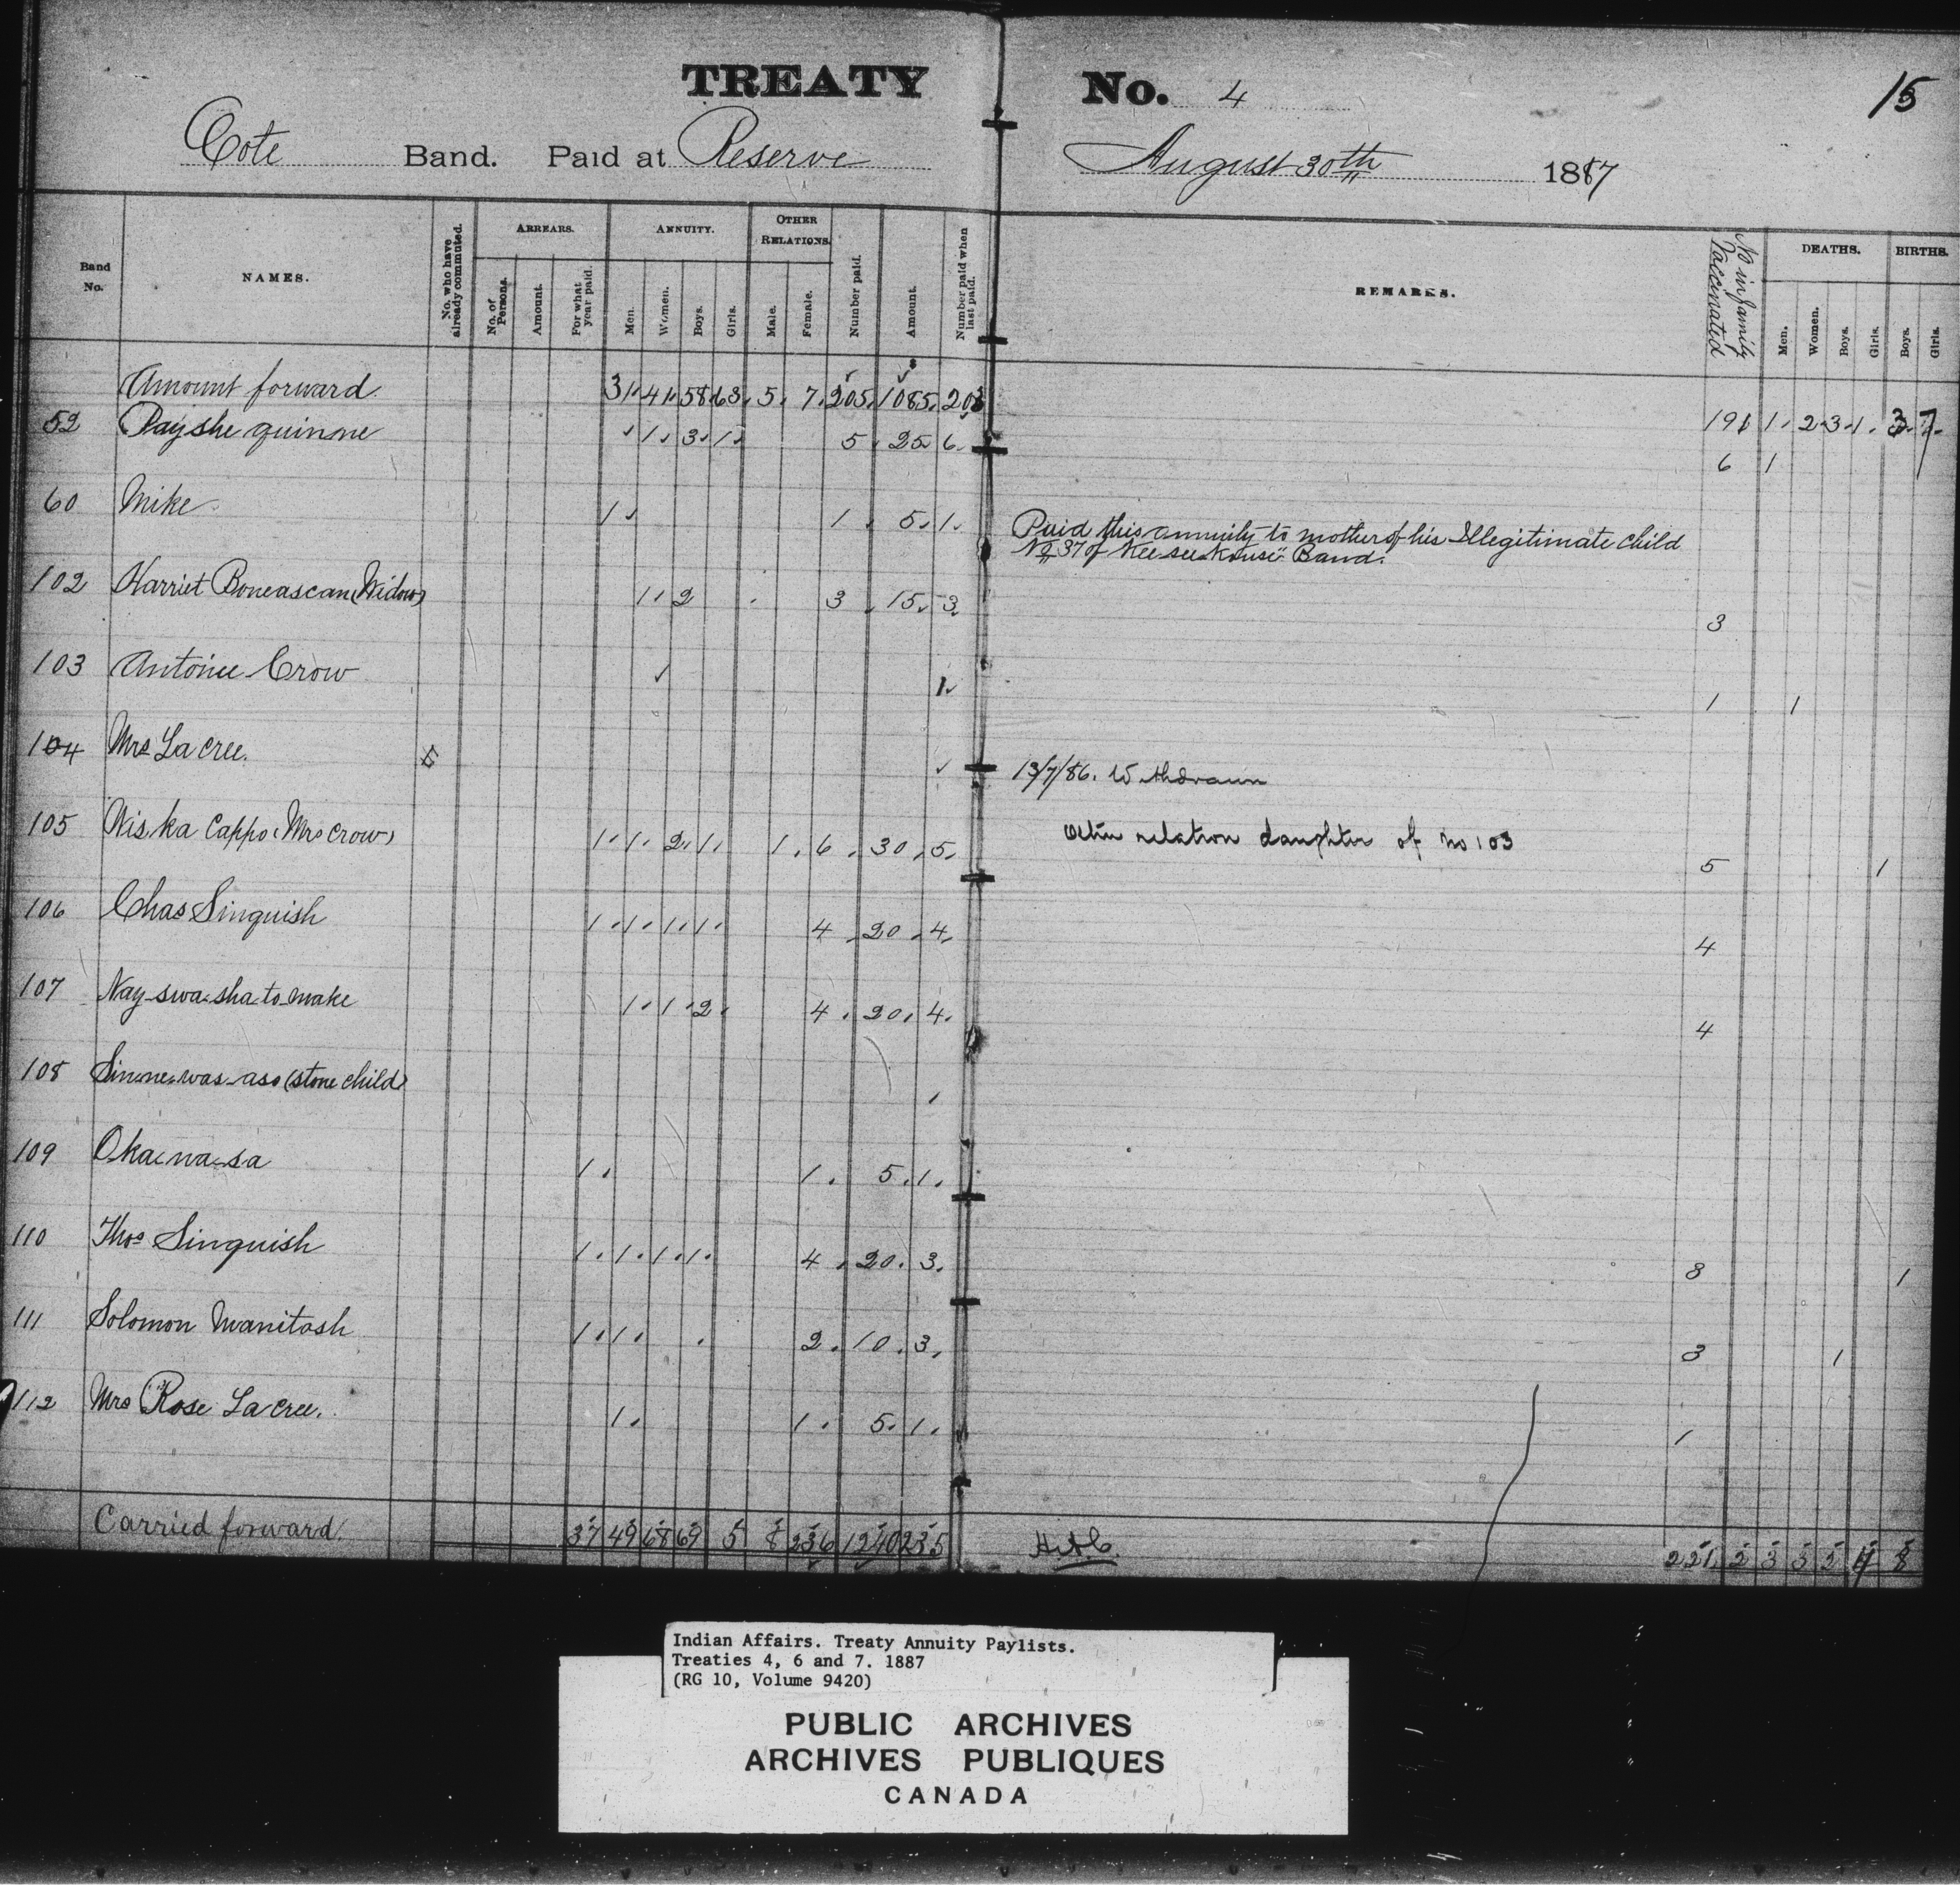 TREATY No. 4
15
Cote Band. Paid at Reserve August 30th 1887
Band No.
NAMES.
No. who have already commuted.
ARREARS.
No. of Persons.
Amount.
For what year paid.
ANNUITY.
Men.
Women.
Boys.
Girls.
OTHER RELATIONS.
Male.
Female.
Number paid.
Amount.
Number paid when last paid.
REMARKS.
No in family Vaccinated
DEATHS.
Men.
Women.
Boys.
Girls.
BIRTHS.
Boys.
Girls.
Amount forward 31 41 58 63 5 7 205 1085 203 191 1 2 3 1 3 7
52 Payshe quinne 1 3 1 5 25 6 6 1
60 Mike 1 1 5 1 Paid this annuity to mother of his Illegitimate child
No 37 of Kee see kouse" Band.
102 Harriet Boneascan (Widow) 1 2 3 15 3 3
103 Antoine Crow 1 1 1
104 Mrs La cree. 13/7/86. Withdrawn
105 Wis ka Cappo (Mrs Crow) 1 1 2 1 1 6 30 5 Other relation daughter of no 103 5 1
106 Chas Singuish 1 1 1 1 4 20 4 4
107 Nay-swa-sha-to-make 1 1 2 4 20 4 4
108 Sinne-was-aso (stone child)
109 Oka-na-sa 1 1 5 1
110 Thos Singuish 1 1 1 1 4 20 3 8 1
111 Solomon Manitosh 1 1 2 10 3 3 1
112 Mrs Rose La cree. 1 1 5 1 1
Carried forward 37 49 68 69 5 8 236 1240 235 221 2 3 3 2 4 8
Indian Affairs. Treaty Annuity Paylists.
Treaties 4, 6 and 7. 1887
(RG 10, Volume 9420)
PUBLIC ARCHIVES
ARCHIVES PUBLIQUES
CANADA